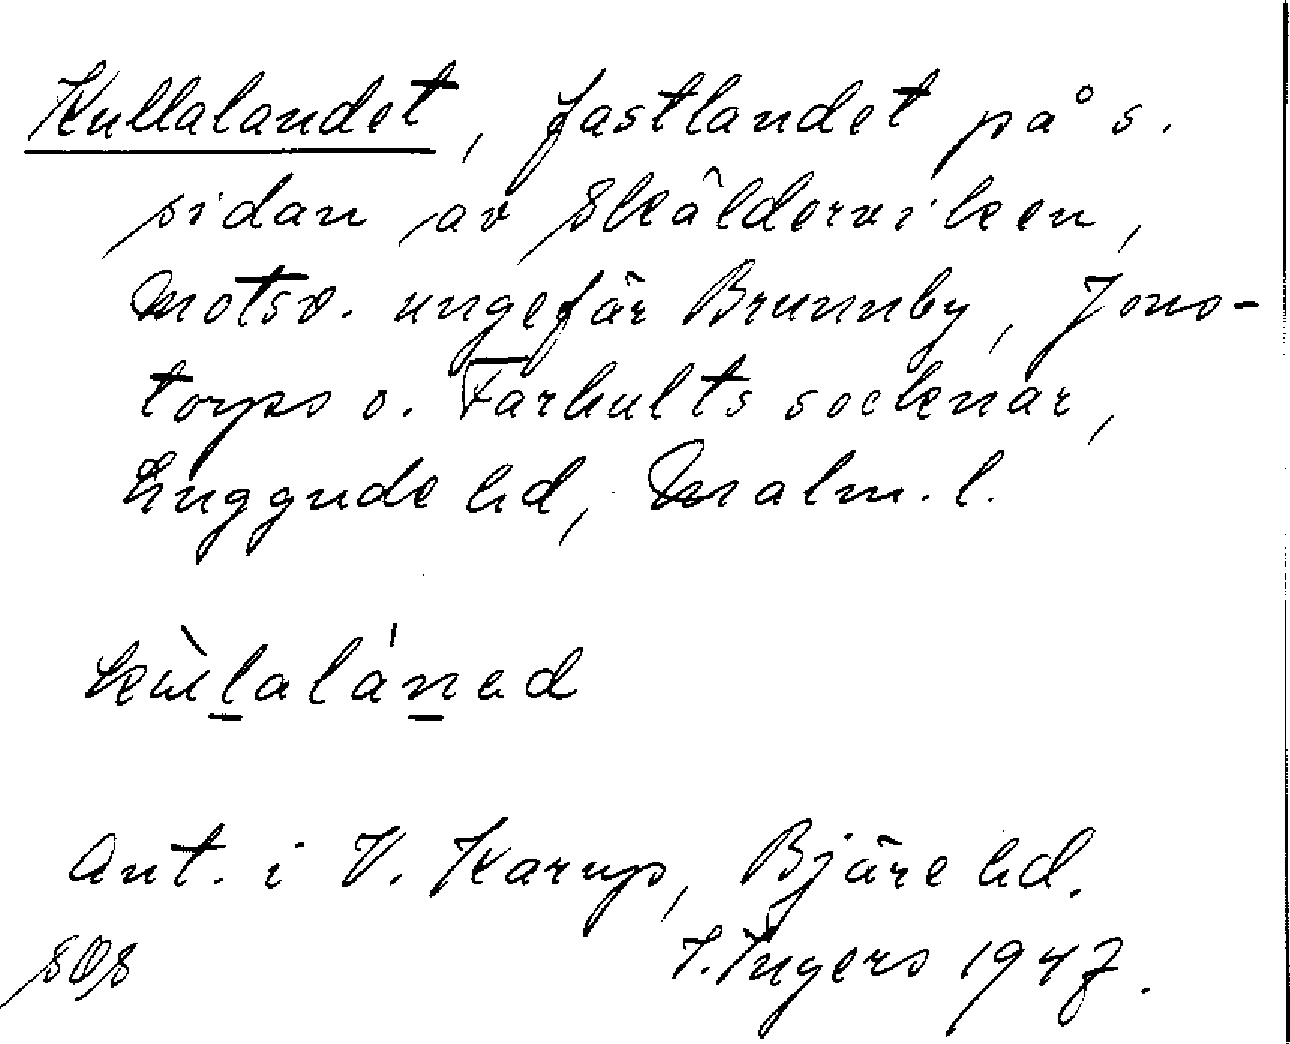 Kullalandet, fastlandet på s.
sidan av Skälderviken,
motsv. ungefär Brunnby, Jons-
torps o. Farhults socknar,
Luggude hd, Malm. l.
Ant. i V. Karup, Bjäre hd.
I. Ingers 1947.